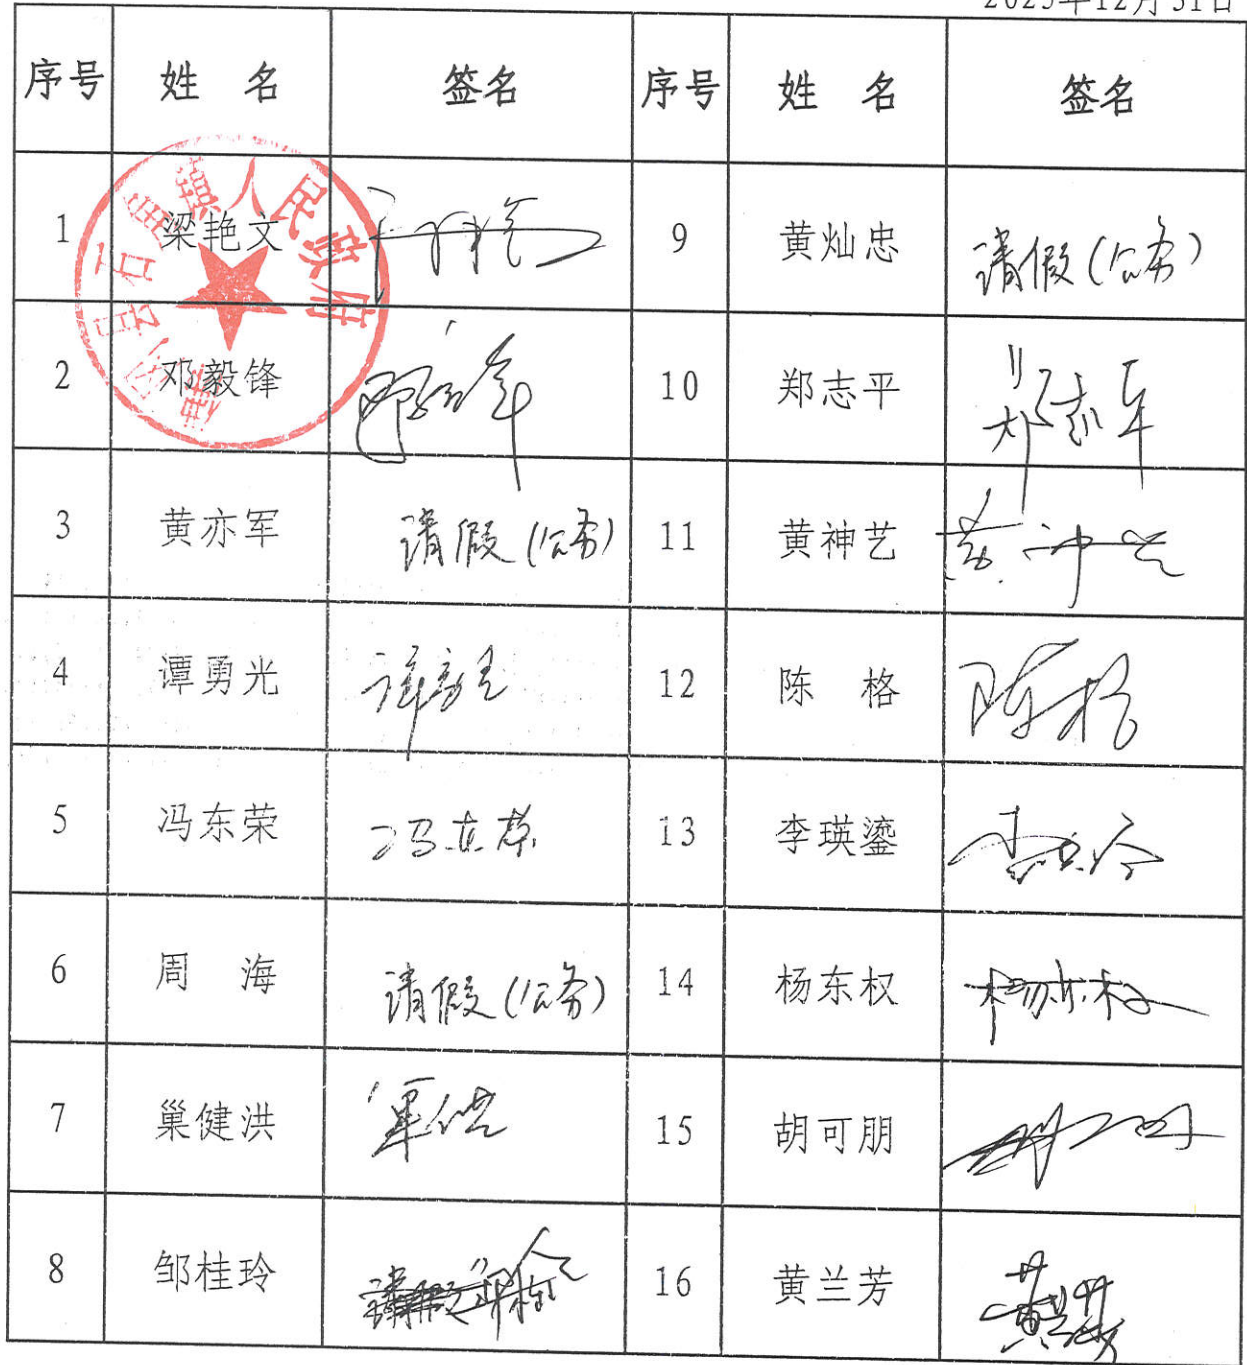 2023年12月31日
序号 姓 名 签名 序号 姓 名 签名
1 梁艳文 9 黄灿忠 请假(公务)
2 邓毅锋 10 郑志平 郑志平
3 黄亦军 请假(公务) 11 黄神艺 黄神艺
4 谭勇光 谭勇光 12 陈 格 陈格
5 冯东荣 冯东荣 13 李瑛鎏
6 周 海 请假(公务) 14 杨东权 杨东权
7 巢健洪 15 胡可朋
8 邹桂玲 16 黄兰芳 黄兰芳
石 镇人民政府